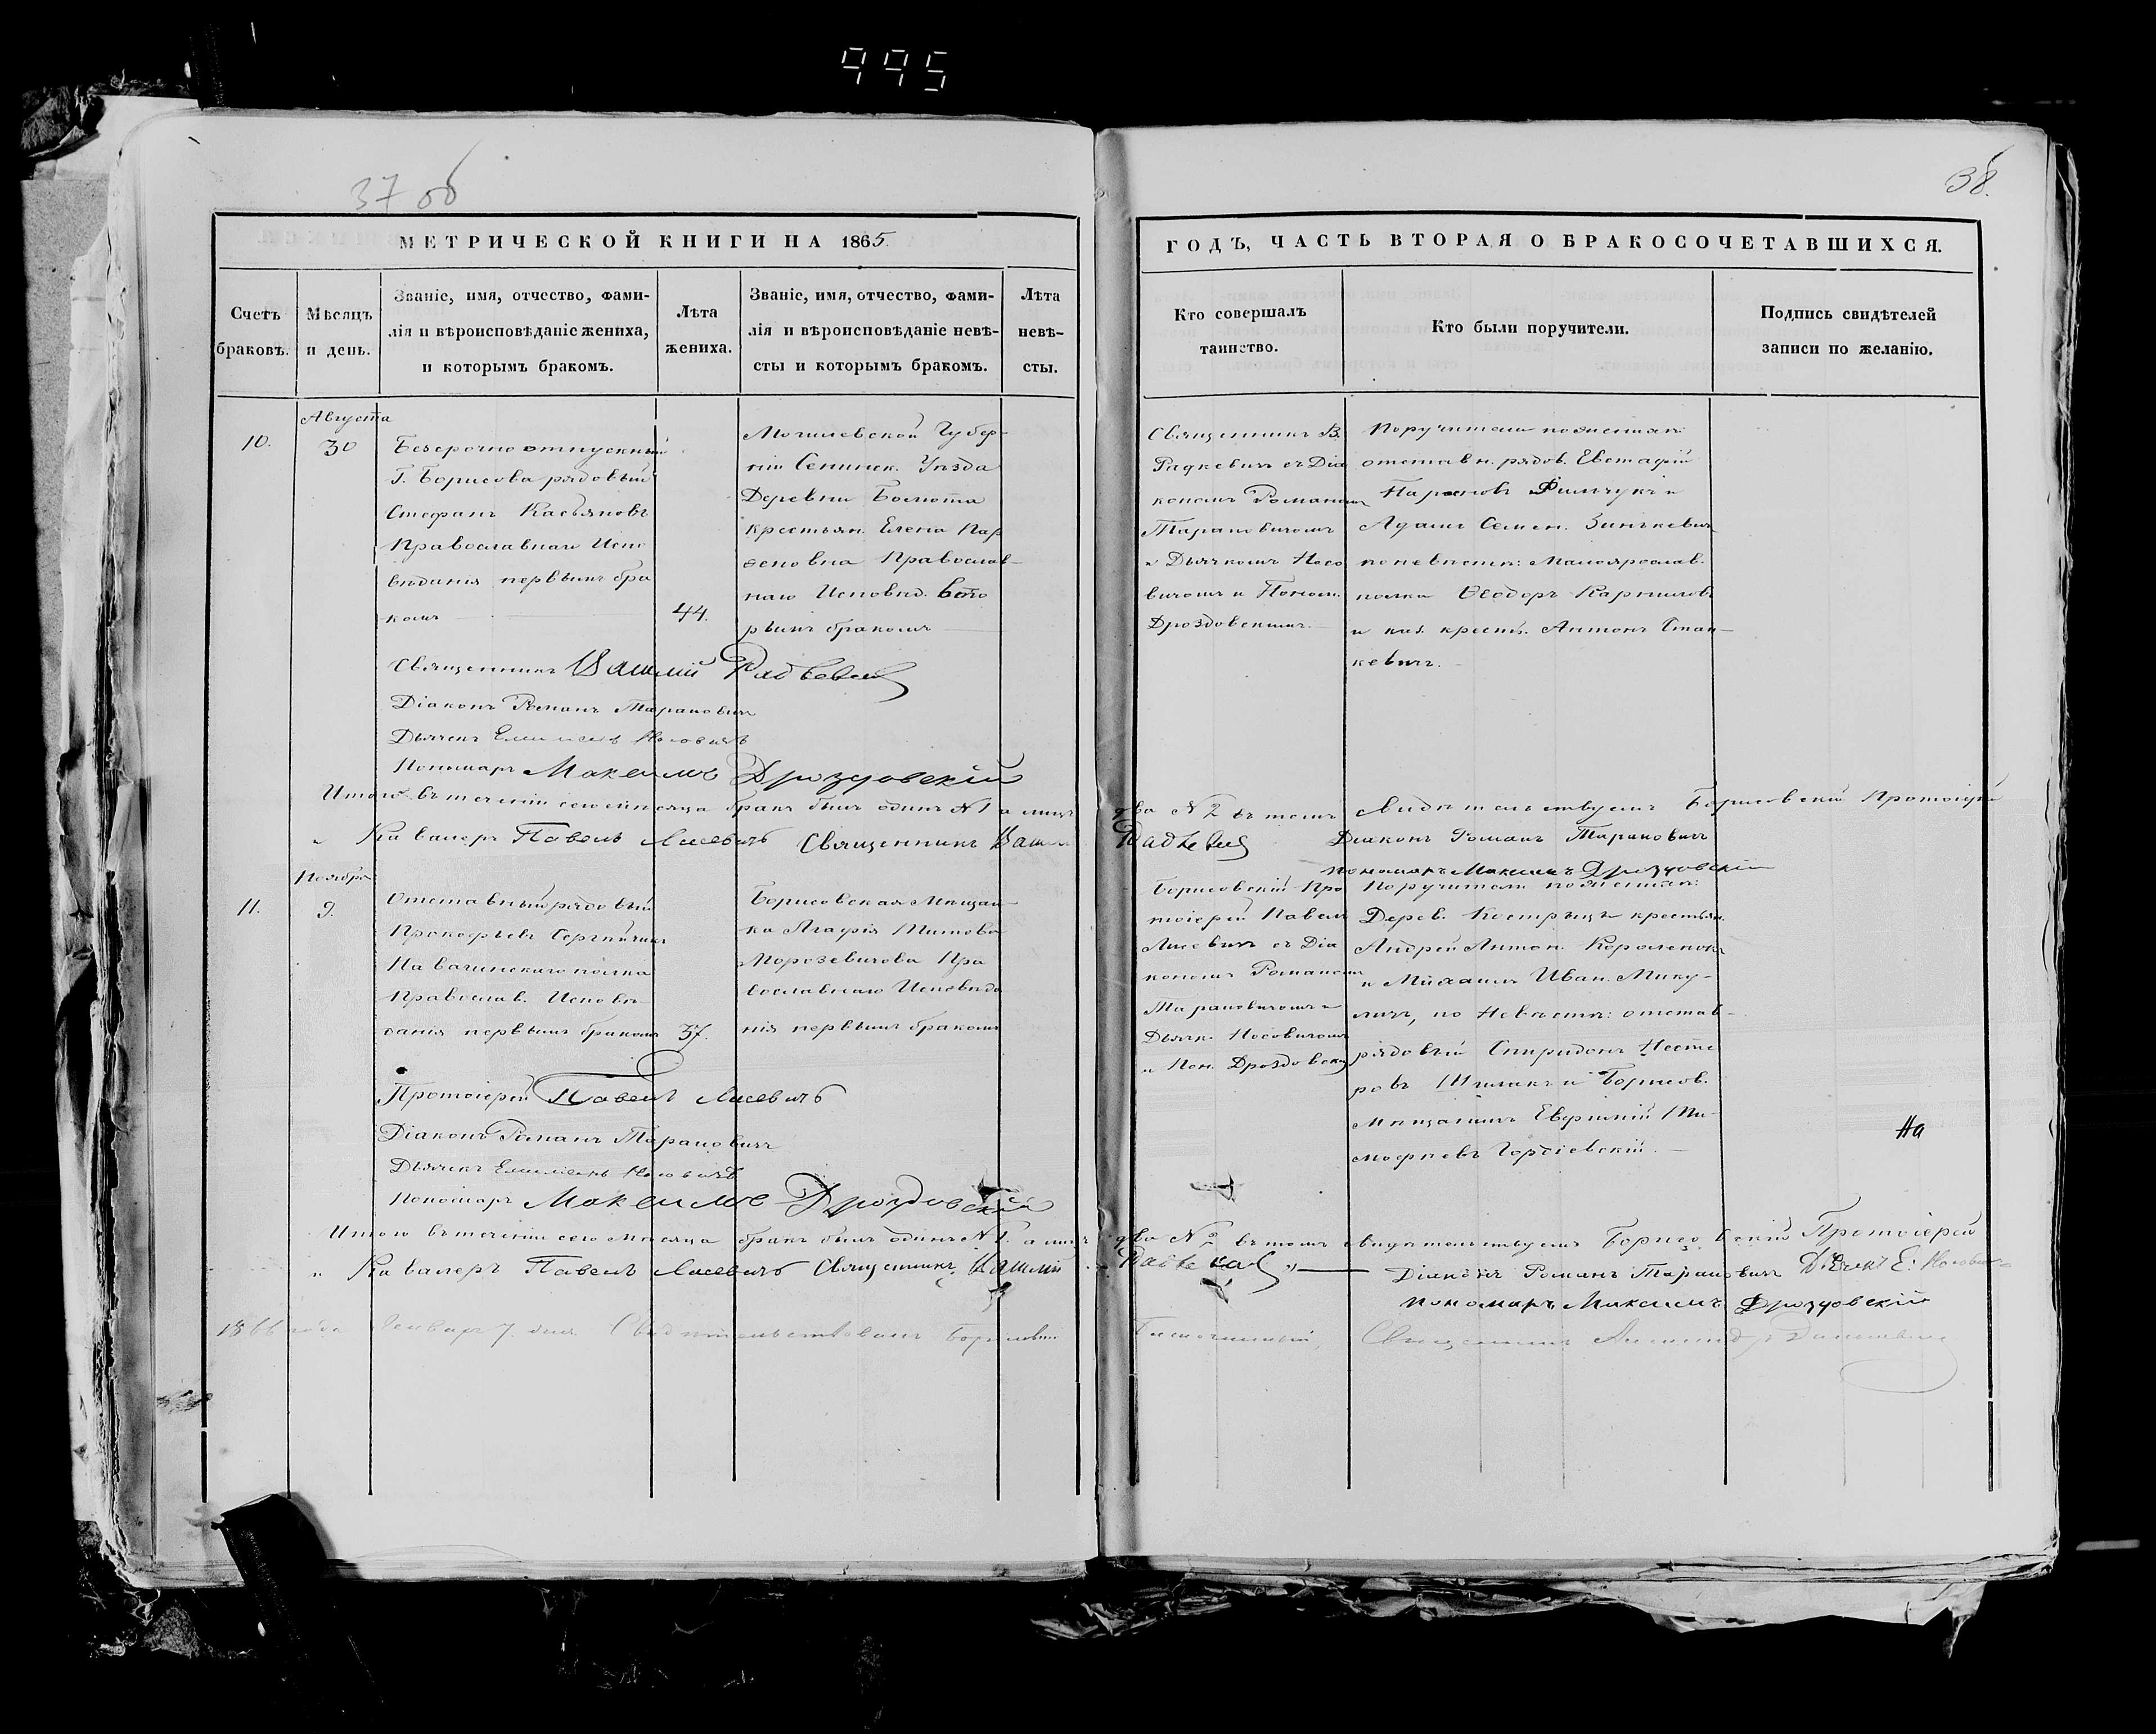 995
37 об
38.
МЕТРИЧЕСКОЙ КНИГИ НА 1865
ГОДЪ, ЧАСТЬ ВТОРАЯ О БРАКОСОЧЕТАВШИХСЯ.
Счетъ
браковъ.
Мѣсяцъ
и день.
Званіе, имя, отчество, фами-
лія и вѣроисповѣданіе жениха,
и которымъ бракомъ.
Лѣта
жениха.
Званіе, имя, отчество, фами-
лія и вѣроисповѣданіе невѣ-
сты и которымъ бракомъ.
Лѣта
невѣ-
сты.
Кто совершалъ
таинство.
Кто были поручители.
Подпись свидѣтелей
записи по желанію.
10.
Августа
30
Безсрочно отпускный
Г. Борисова рядовый
Стефанъ Касьяновъ
Православнаго Испо
вѣданія первымъ бра
комъ
44.
Могилевской Губер-
ніи Сеннинск. Уѣзда
Деревни Болота
крестьян. Елена Пар
ѳеновна Православ-
наго Исповѣд. вто
рымъ бракомъ
Священникъ В.
Радкевичъ съ Діа
кономъ Романомъ
Тарановичомъ
и Дьячкомъ Носо
вичомъ и Поном.
Дроздовскимъ
Поручители по женихѣ:
отставн. рядов. Евстафій
Парѳеновъ Филь­чукъ и
Адамъ Семен. Зинькевичъ
по невѣстѣ: Малоярослав.
полка Ѳеодоръ Карниловъ
и каз. крест. Антонъ Стан-
кевичъ.
Священникъ Василій Радкевичъ
Діаконъ Романъ Тарановичъ
Дьячекъ Емиліанъ Носовичъ
Пономарь Максимъ Дроздовскій
Итого въ теченіи сего мѣсяца бракъ былъ одинъ N 1 а лицъ два N 2 въ томъ свидѣтельствуемъ Борисовскій Протоіерей
и Кавалеръ Павелъ Лисевичъ Священникъ Васил Радкевичъ Діаконъ Романъ Тарановичъ
пономарь Максимъ Дроздовскій
11.
Ноября
9.
Отставный рядовый
Прокофьевъ Сергѣичъ
Навагинскаго полка
Православ. Исповѣ-
данія первымъ бракомъ
37.
Борисовская Мѣщан-
ка Агафія Титова
Морозевичова Пра
вославнаго Исповѣда
нія первымъ бракомъ
Борисовскій Про
тоіерей Павелъ
Лисевичъ съ Діа
кономъ Романомъ
Тарановичомъ и
Дьячк. Носовичомъ
и Пон. Дроздовск.
Поручители по женихѣ:
Дерев. крестьян.
Андрей Антон. Короленокъ
и Михаилъ Иван. Мику-
личъ, по Невѣстѣ: отстав-
рядовый Спиридонъ Несте
ровъ и Борисов.
Мѣщанинъ Евгеній Ти-
моѳеевъ Гордіевскій.
На
Протоіерей Павелъ Лисевичъ
Діаконъ Романъ Тарановичъ
Дьячекъ Емиліанъ Носовичъ
Пономарь Максимъ Дроздовскій
Итого въ теченіи сего Мѣсяца бракъ былъ одинъ N 1. а лицъ два N 2 въ томъ свидѣтельствуемъ Борисовскій Протоіерей
и Кавалеръ Павелъ Лисевичъ Священникъ Василій Радкевичъ Діаконъ Романъ Тарановичъ Дьячекъ Е. Носовичъ
пономарь Максимъ Дроздовскій
1866 года Января 7 дня Свидѣтельствовалъ Борисовскій Благочинный, Священникъ